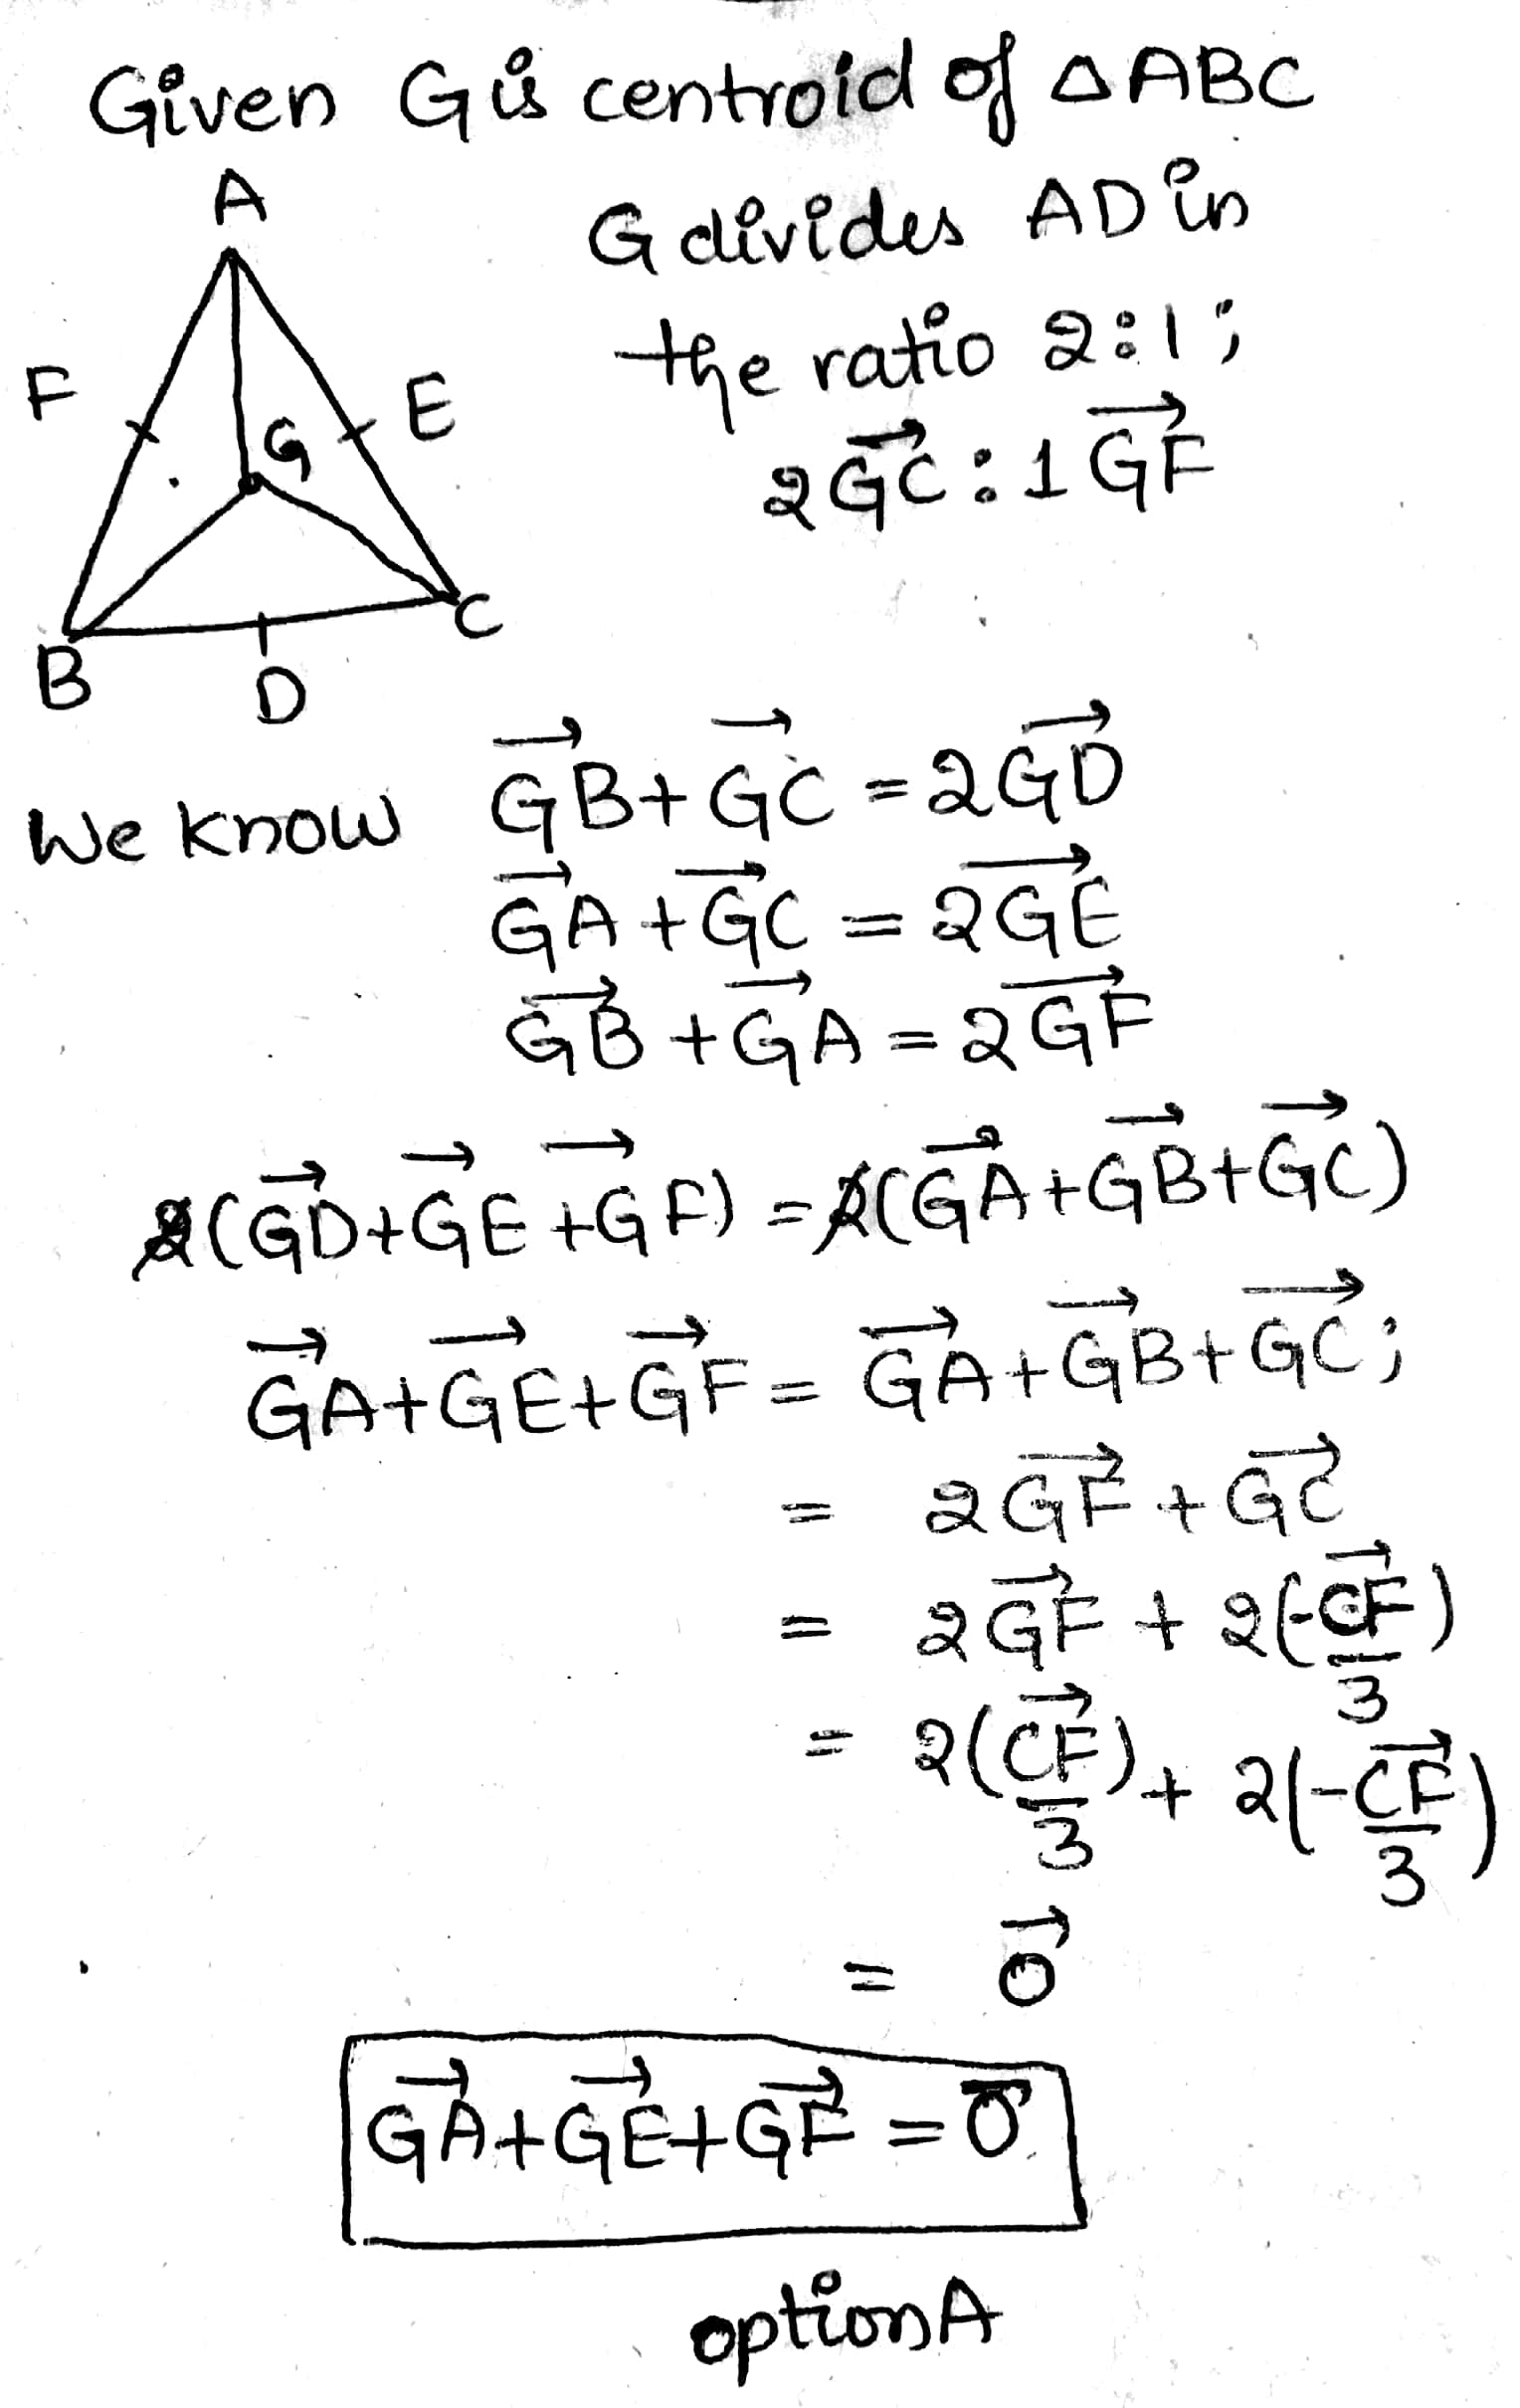 Given G is centroid of △ABC
A
G divides AD in
the ratio 2:1;
F
E
G
2GC⃗ : 1GF⃗
B
D
C
We know GB⃗ + GC⃗ = 2GD⃗
GA⃗ + GC⃗ = 2GE⃗
GB⃗ + GA⃗ = 2GF⃗
2(GD⃗ + GE⃗ + GF⃗) = 2(GA⃗ + GB⃗ + GC⃗)
GA⃗ + GE⃗ + GF⃗ = GA⃗ + GB⃗ + GC⃗;
= 2GF⃗ + GC⃗
= 2GF⃗ + 2(-CF⃗/3)
= 2(CF⃗/3) + 2(-CF⃗/3)
= 0⃗
GA⃗ + GE⃗ + GF⃗ = 0⃗
option A